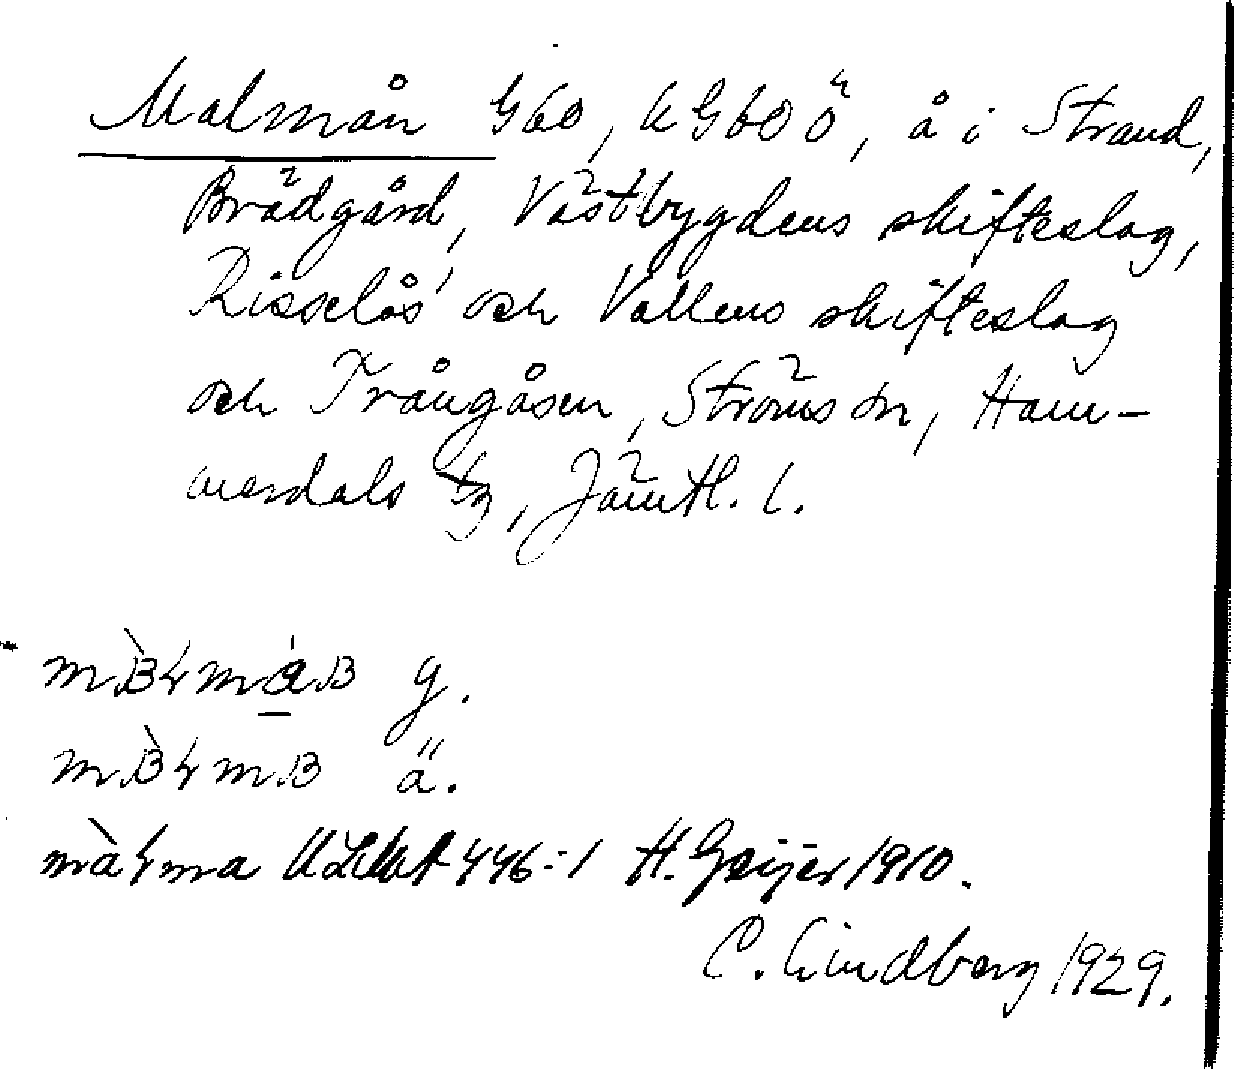 Malmån G60, u G60 ö, å i Strand,
Brädgård, Västbygdens skifteslag,
Risselås och Vallens skifteslag
och Trångåsen, Ströms sn, Ham-
merdals tg, Jämtl. l.
g.
ä.
446:1 H. Geijer 1910.
C. Lindberg 1929.